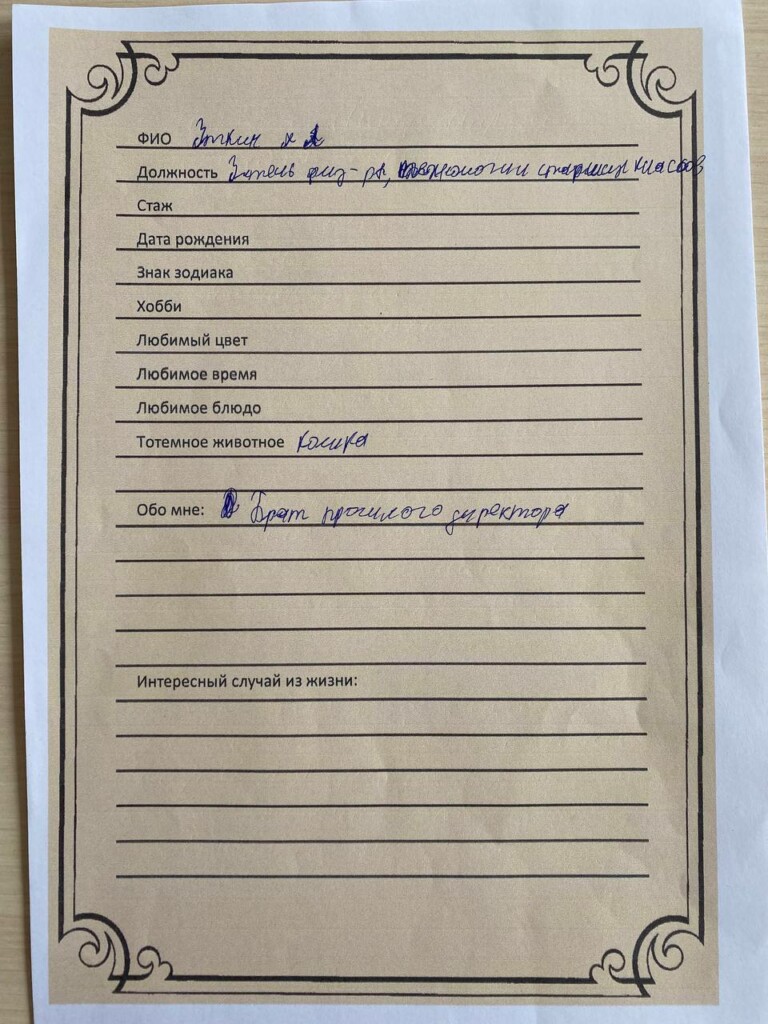 ФИО Эткин
Должность физ-ры, старших классов
Стаж
Дата рождения
Знак зодиака
Хобби
Любимый цвет
Любимое время
Любимое блюдо
Тотемное животное кошка
Обо мне: Брат прошлого директора
Интересный случай из жизни: